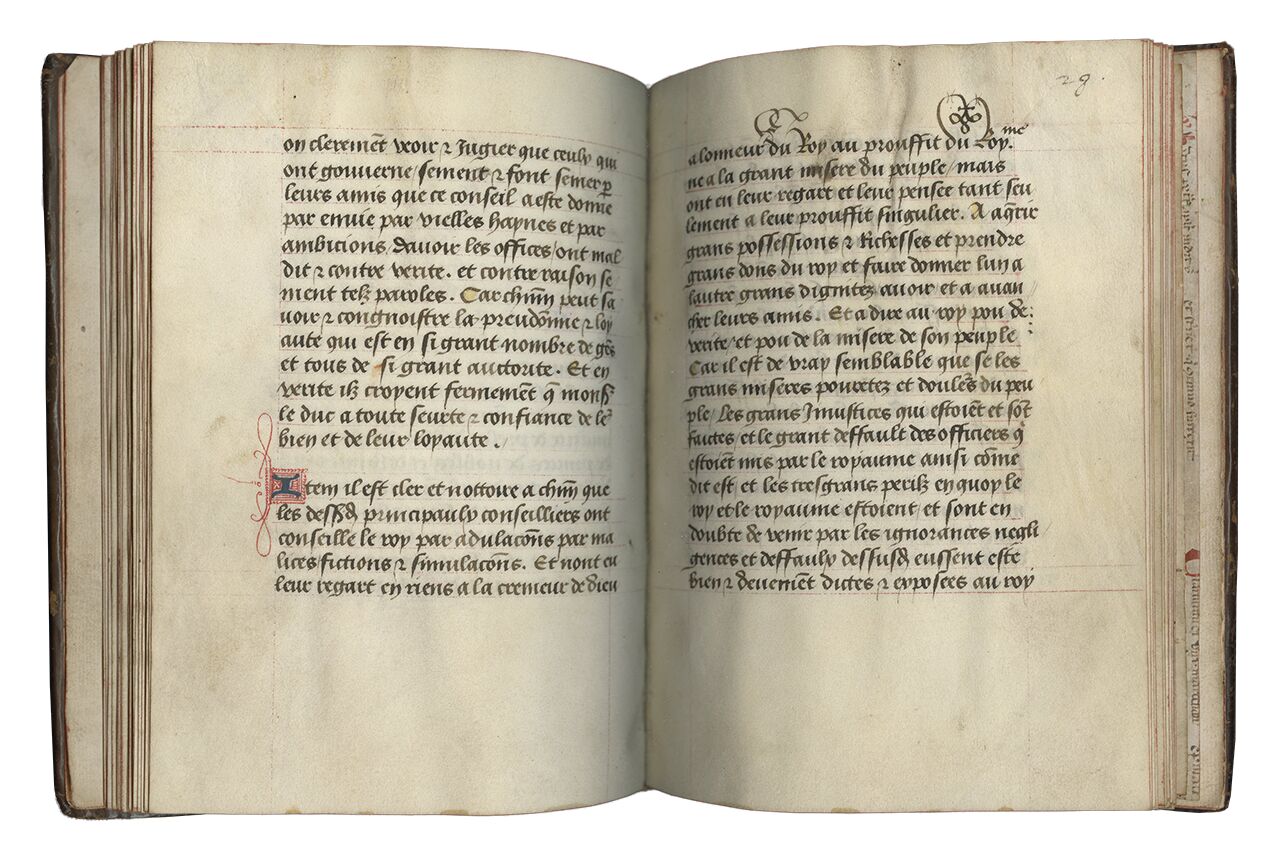 on clerement veoir ⁊ Jugier que ceulx qui
ont gouverne / sement ⁊ font semer p̲
leurs amis que ce conseil a este donne
par envie par vielles haynes et par
ambicions / davoir les offices / ont mal
dit ⁊ contre verite . et contre raison se
ment telz paroles . Car chm̅ peut sa
voir ⁊ congnoistre la preudōme ⁊ loy
aute qui est en si grant nombre de gēs
et tous de si grant auctorite . Et en
verite ilz croyent fermement q̄ mons̄
le duc a toute seurte ⁊ confiance de le᷑
bien et de leur loyaute .
Item il est cler et nottoire a chm̅ que
les dess̄d principaulx conseilliers ont
conseille le roy par adulacōns par ma
lices fictions ⁊ simulacōns . Et nont eu
leur regart en riens a la cremeur de dieu
28 .
a lonneur du Roy au prouffit du Roy.me
ne a la grant misere du peuple / mais
ont eu leur regart et leur pensee tant seu
lement a leur prouffit singulier . A aq̄rir
grans possessions ⁊ Richesses et prendre
grans dons du roy et faire donner lun a
lautre grans dignitez avoir et a avan
cher leurs amis . Et a dire au roy pou de
verite / et pou de la misere de son peuple
Car il est de vray semblable que se les
grans miseres povretez et doule᷑s du peu
ple / Les grans Jniustices qui estoiēt et sōt
faictes / et le grant deffault des officiers q̄
estoiēt mis par le royaume ainsi cōme
dit est / et les tresgrans perilz en quoy le
roy et le royaume estoient / et sont en
doubte de venir par les ignorances negli
gences et deffaulx dessusd eussent este
bien ⁊ deuemēt dictes ⁊ exposees au roy